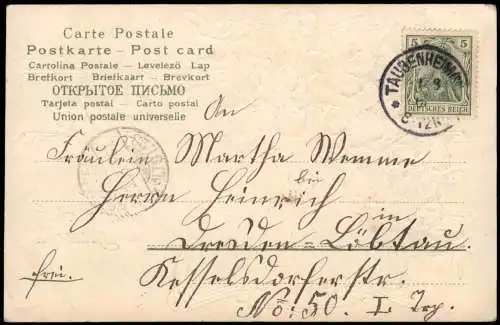 Carte Postale
Postkarte – Post card
Cartolina Postale – Levelező Lap
Brefkort – Briefkaart – Brevkort
ОТКРЫТОЕ ПИСЬМО
Tarjeta postal – Carto postal
Union postale universelle
5 5
DEUTSCHES REICH
TAUBENHEIM
8-12N
An
Fräulein Martha Wemme
bei
Herrn Heinrich
in
Dresden-Löbtau.
frei.
Kesselsdorferstr.
No: 50. I. Trp.